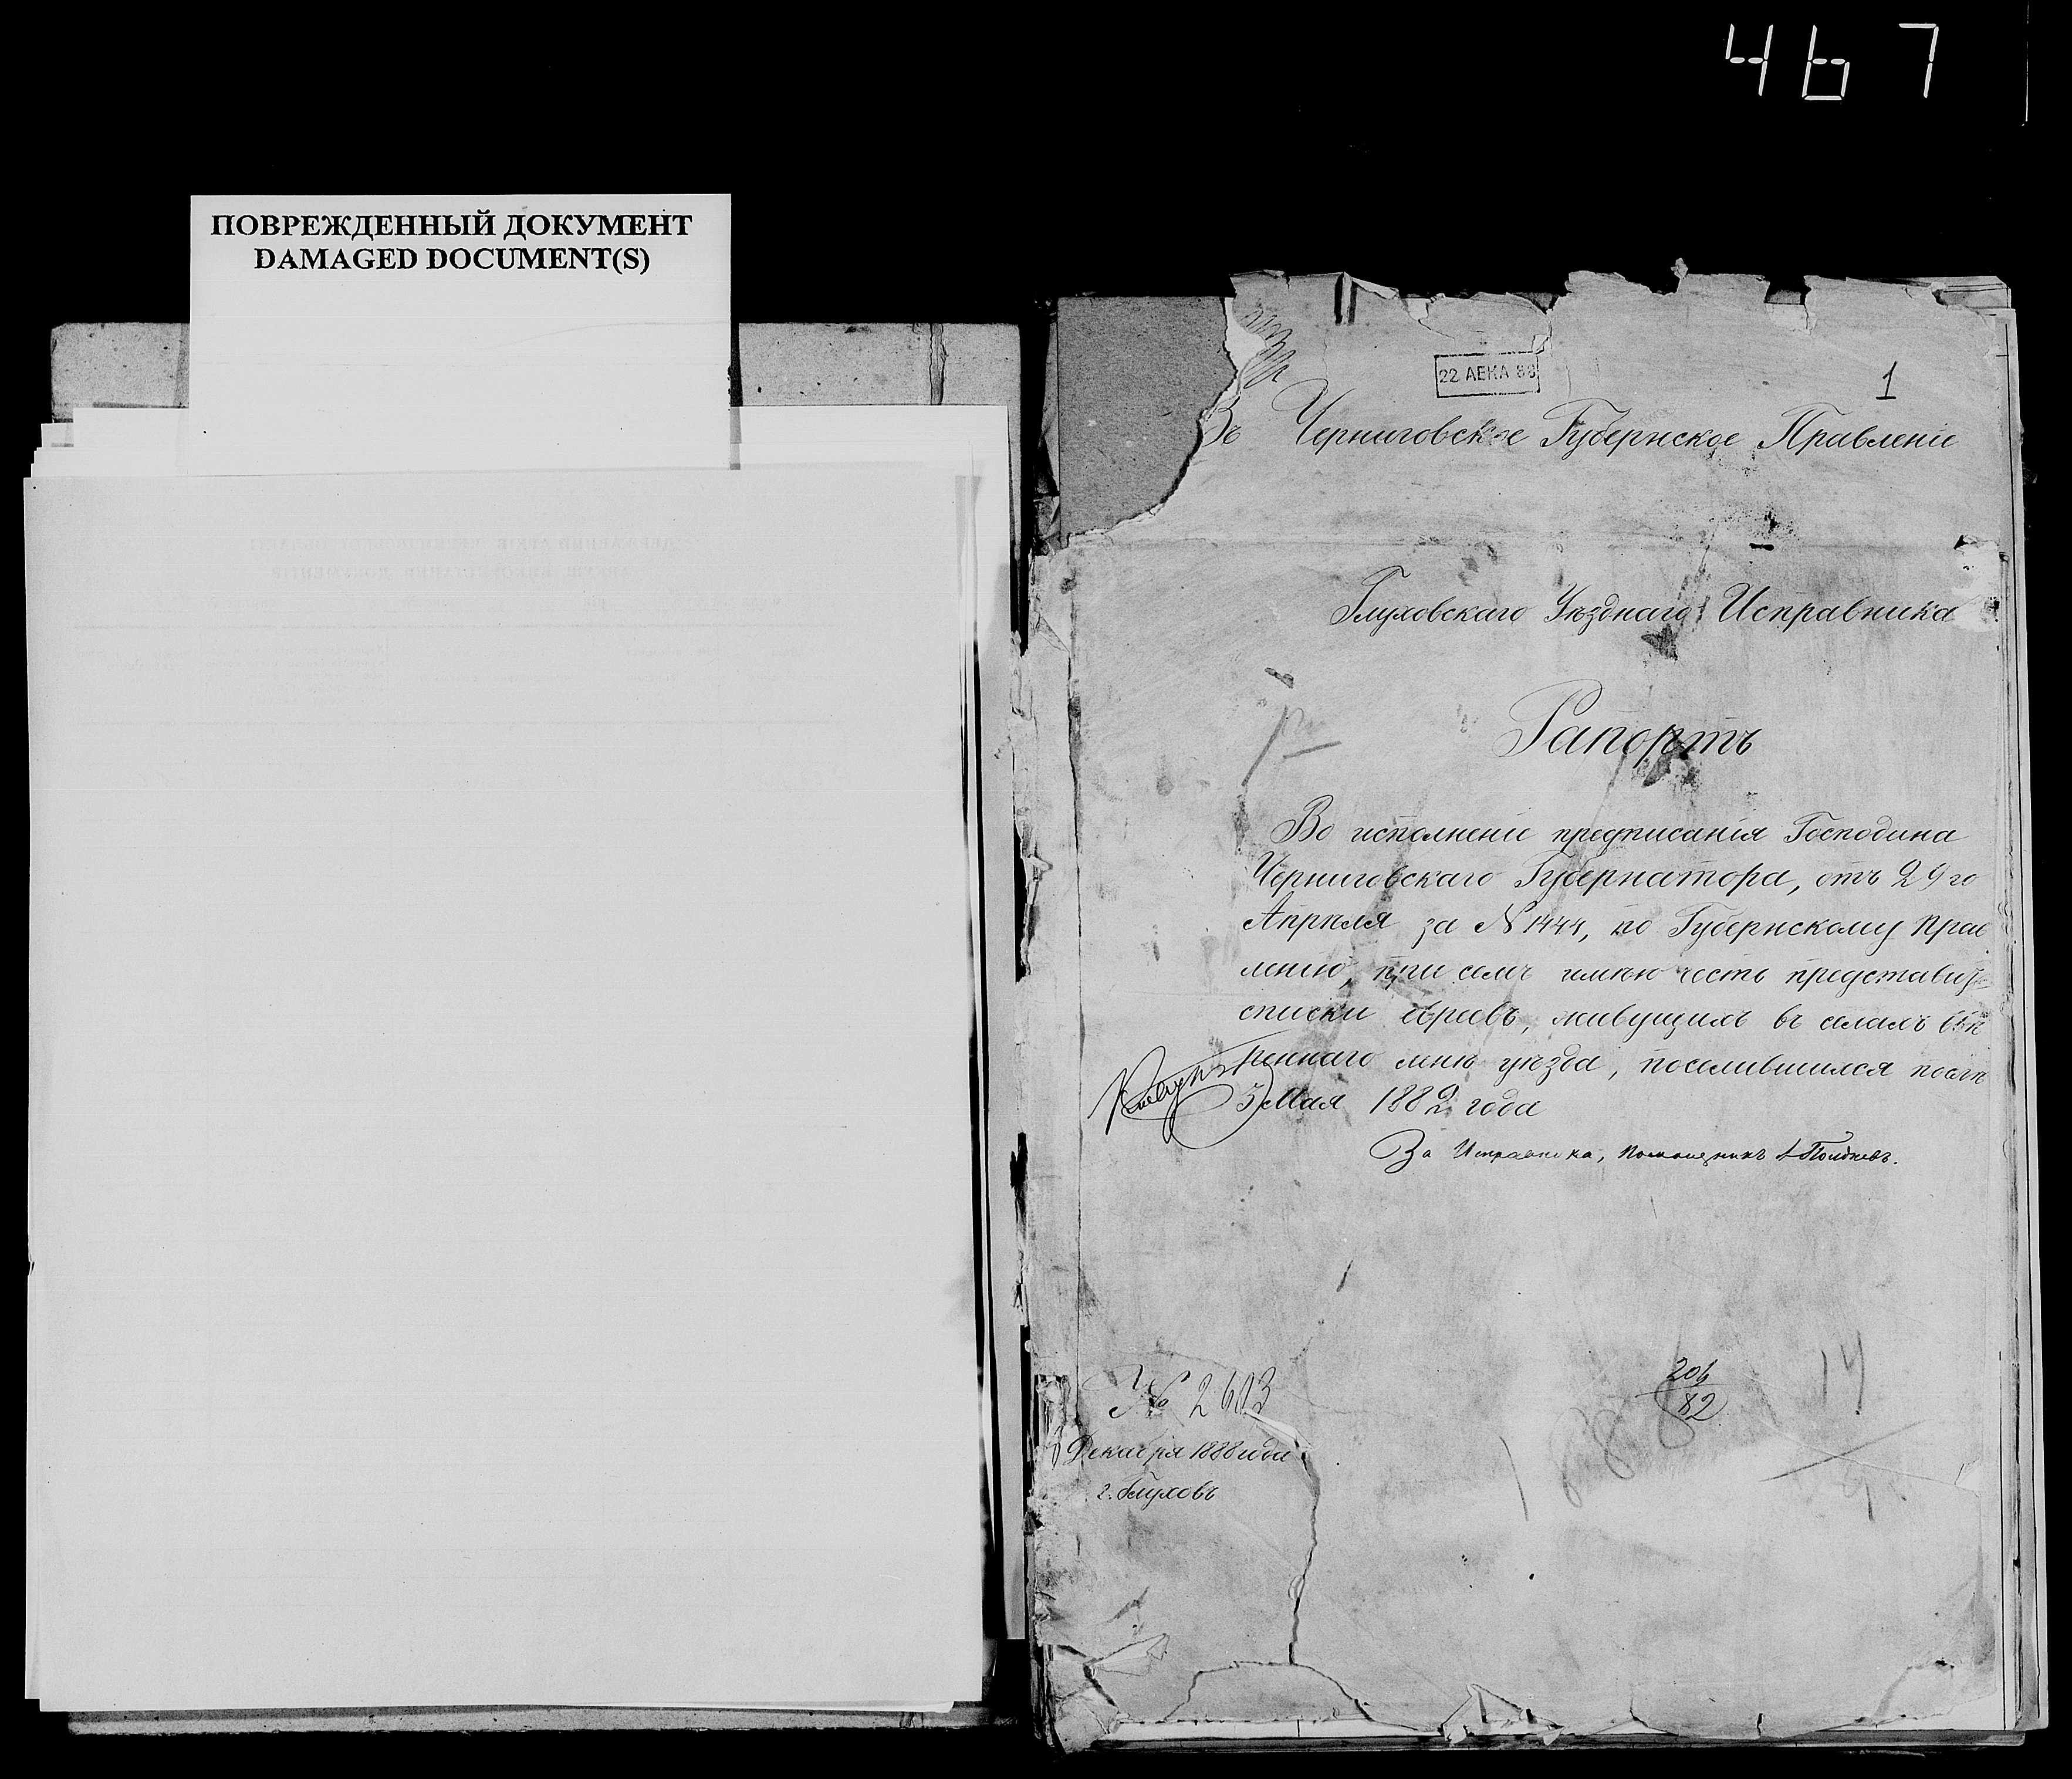 467
ПОВРЕЖДЕННЫЙ ДОКУМЕНТ
DAMAGED DOCUMENT(S)
22 ДЕКА 88
1
Въ Черниговское Губернское Правленіе
Глуховскаго Уѣзднаго Исправника
Рапортъ
Во исполненіе предписанія Господина
Черниговскаго Губернатора, отъ 29 го
Апрѣля за № 1444, по Губернскому Прав
ленію, при семъ имѣю честь представить
списки евреевъ, живущихъ въ селахъ ввѣ
реннаго мнѣ уѣзда, поселившихся послѣ
3 Мая 1882 года
За Исправника, Помощникъ
№ 2603
Декабря 1888 года
г. Глуховъ
206
82
14
1888